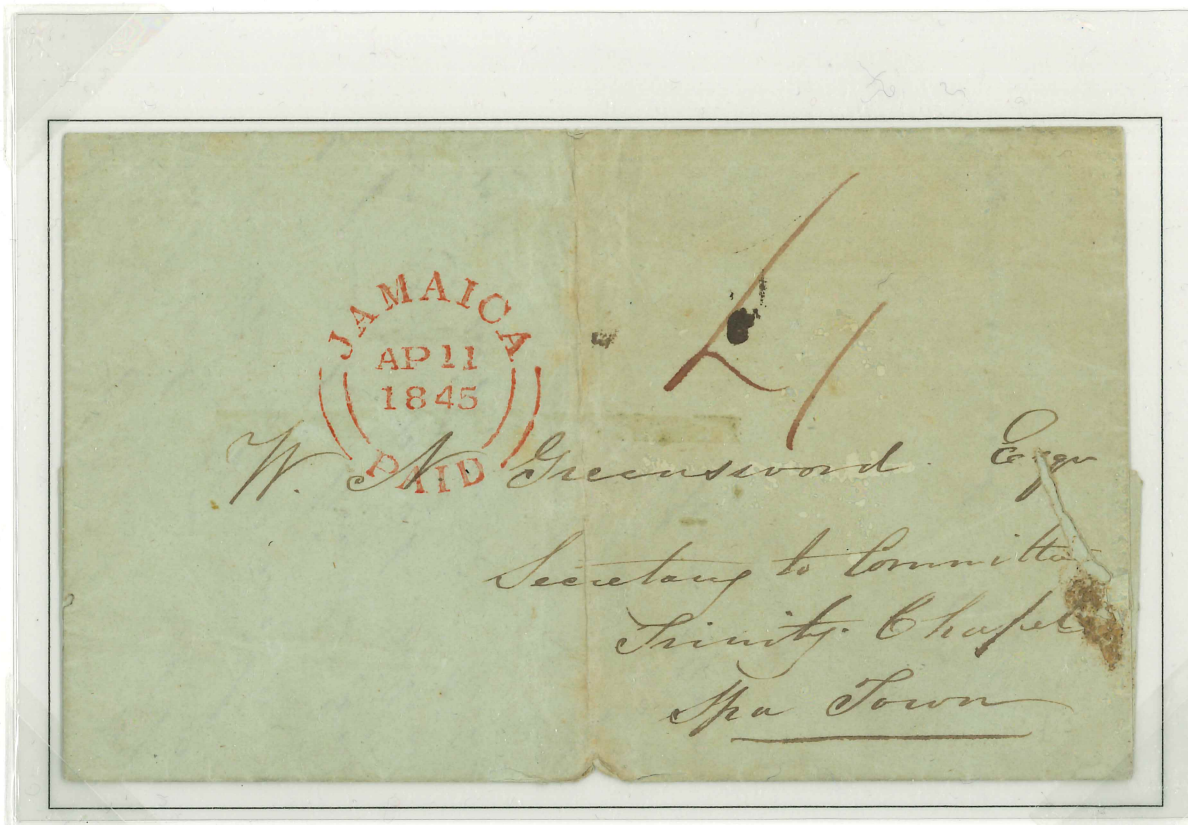 JAMAICA
AP 11
1845
PAID
W. N. Greensword Esqr
Secretary to Committee
Trinity Chapel
Spa Town